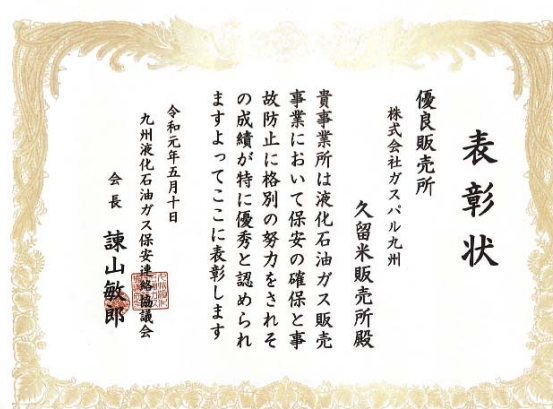 表彰状
優良販売所
株式会社ガスパル九州
久留米販売所殿
貴事業所は液化石油ガス販売
事業において保安の確保と事
故防止に格別の努力をされそ
の成績が特に優秀と認められ
ますよってここに表彰します
令和元年五月十日
九州液化石油ガス保安連絡協議会
会長 諌山敏郎